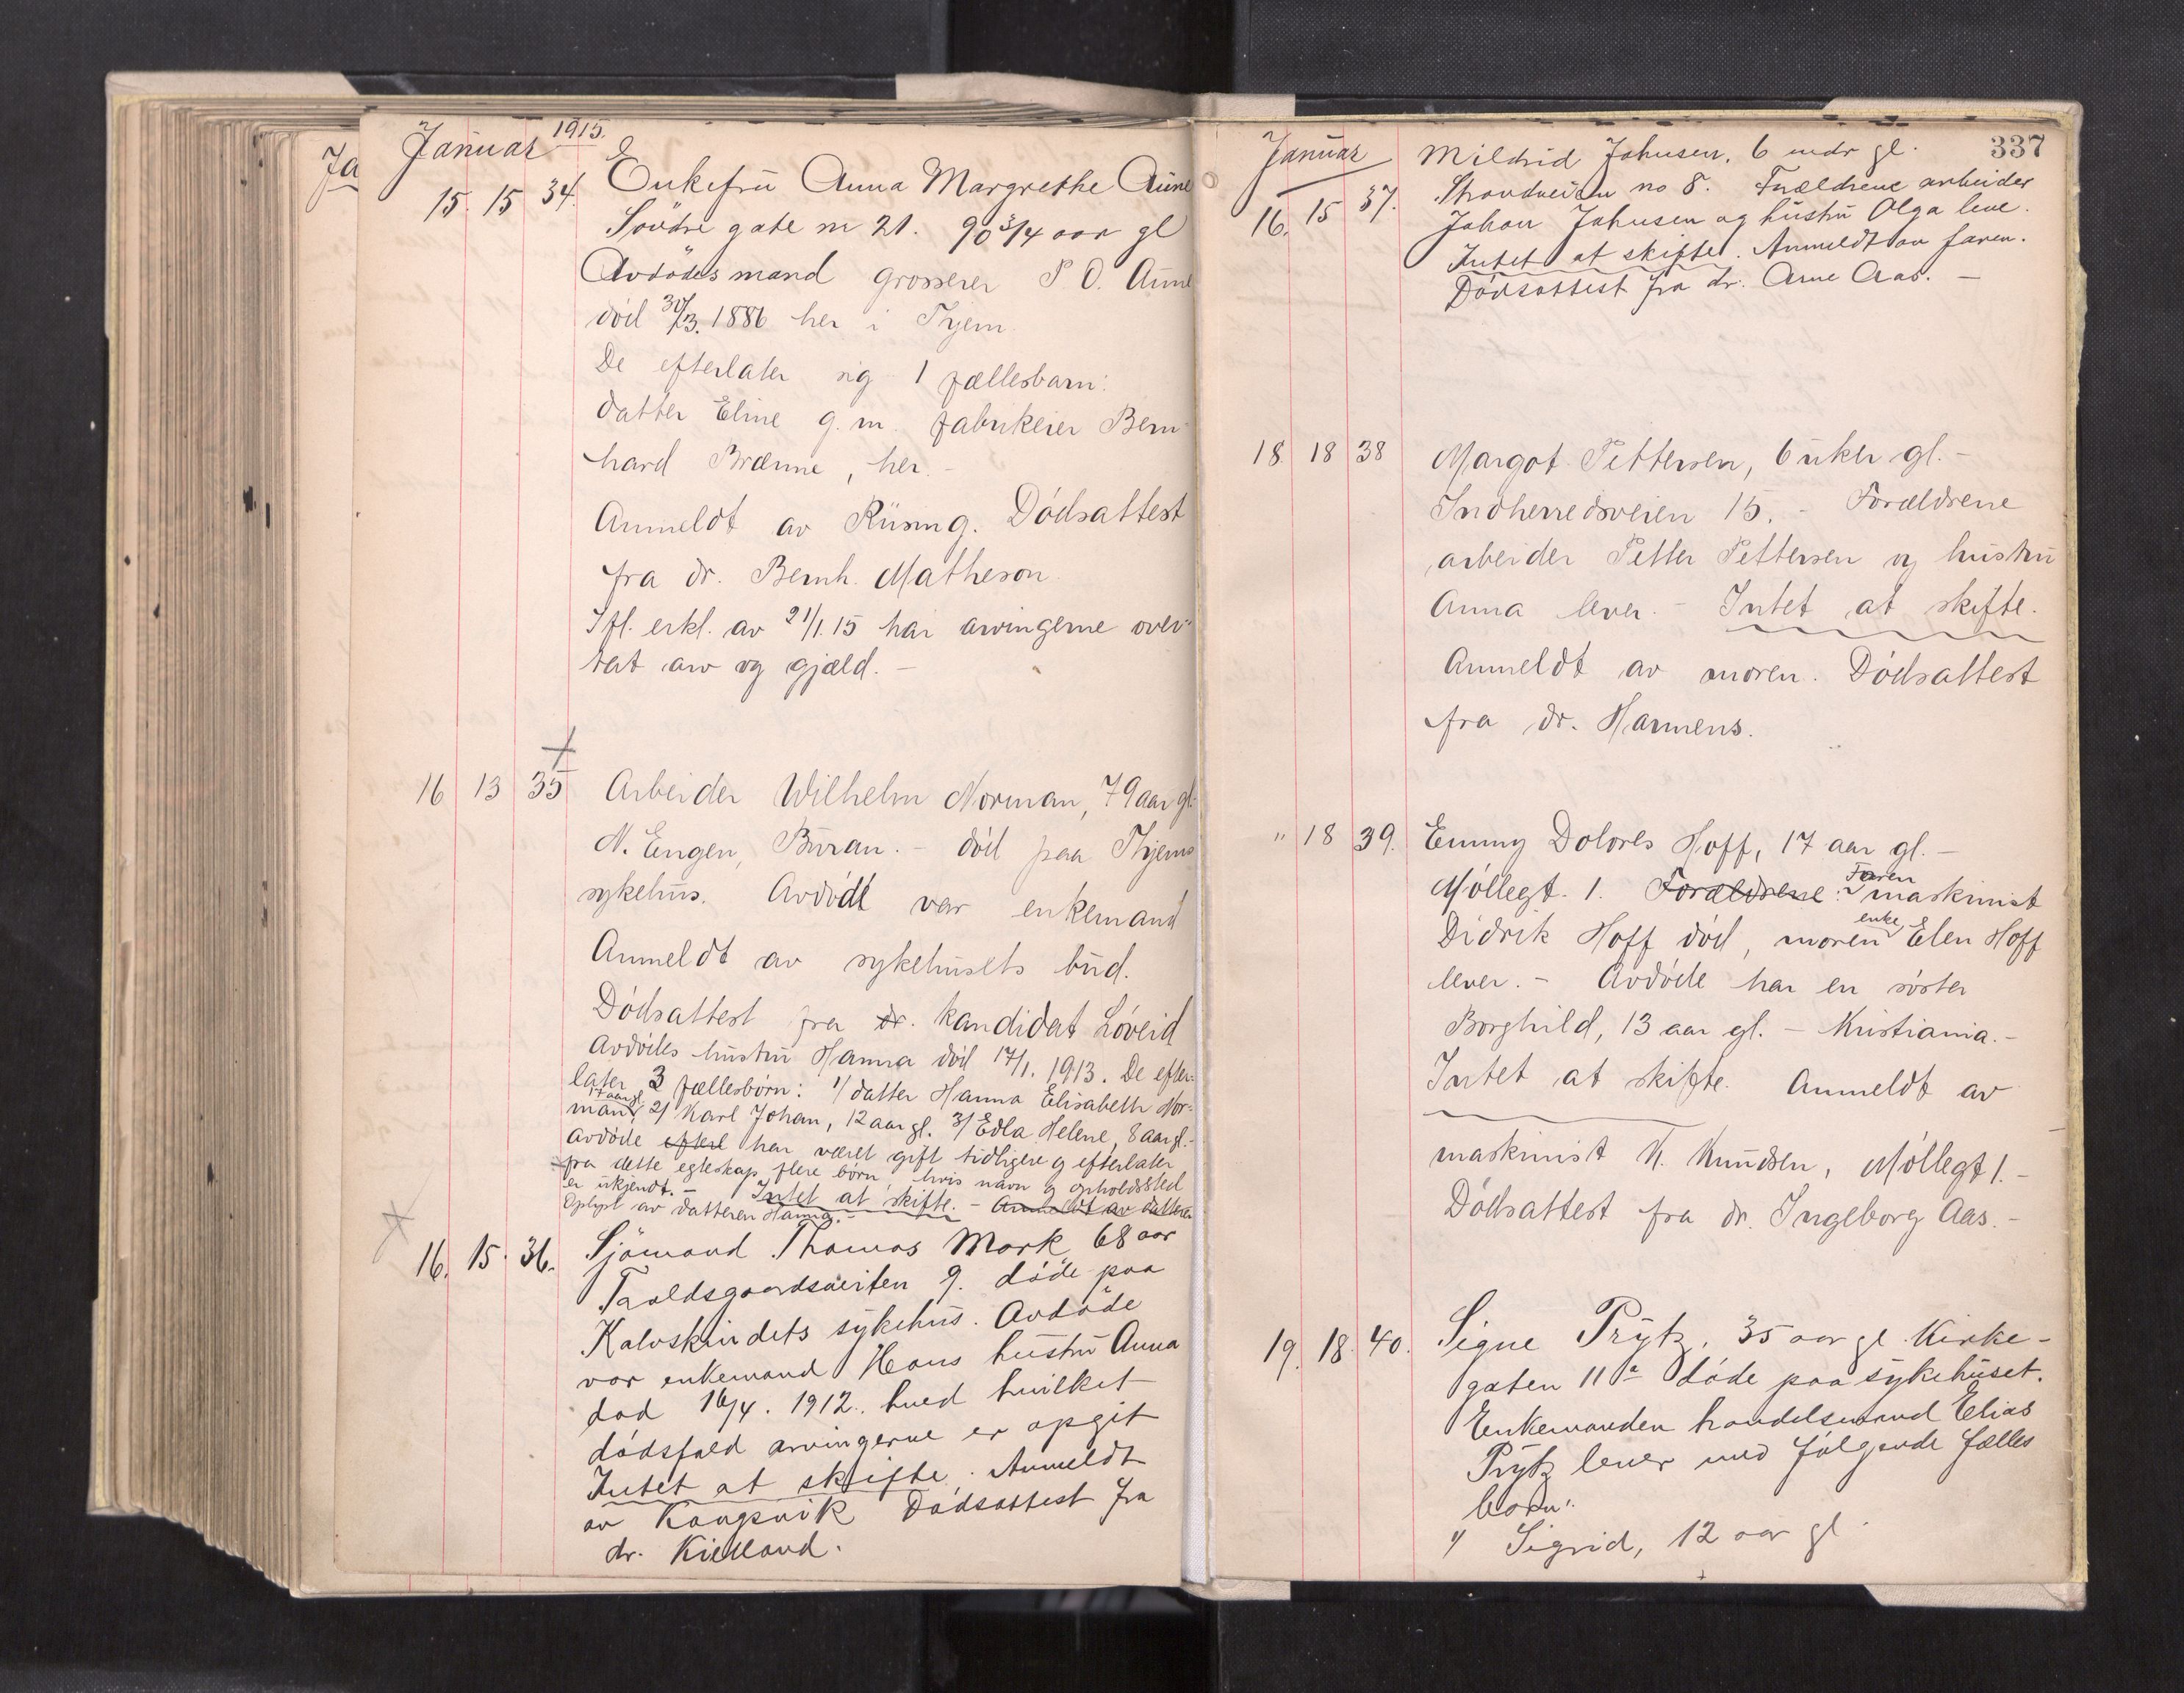 Januar 1915.
15. 15 34. Enkefru Anna Margrethe Aune
Søndre gate nr 21. 90 3/4 aar gl
Avdødes mand grosserer P. O. Aune
död 30/3. 1886 her i Thjem.
De efterlater sig 1 fællesbarn:
datter Eline g. m. fabrikeier Bern-
hard Brænne, her. -
Anmeldt av Riising. Dødsattest
fra dr. Bernh. Matheson.
Ifl. erkl. av 21/1. 15 har arvingerne over-
tat arv og gjæld. -
16 13 35 Arbeider Wilhelm Norman, 79 aar gl.
N. Engen, Buran. - död paa Thjems
sykehus. Avdöde var enkemand
Anmeldt av sykehusets bud.
Dødsattest fra dr. kandidat Løveid
Avdödes hustru Hanna död 17/1. 1913. De efter-
later 3 fællesbörn: 1/ datter Hanna Elisabeth Nor-
man, 17 aar gl. 2/ Karl Johan, 12 aar gl. 3/ Edla Helene, 8 aar gl. -
Avdöde efterl har været gift tidligere og efterlater
fra dette egteskap flere børn hvis navn og opholdssted
er ukjendt. - Intet at skifte. - Anmeldt av datteren
Oplyst av datteren Hanna. -
16. 15. 36. Sjömand Thomas Mork 68 aar
9. döde paa
Kalvskindets sykehus. Avdöde
var enkemand Hans hustru Anna
död 16/4. 1912. hved hvilket
dödsfald arvingerne er opgit
Intet at skifte. Anmeldt
av Kongsvik Dödsattest fra
dr. Kielland.
337
Januar
16. 15 37. Mildrid Johnsen, 6 mdr gl.
Strandveien no 8. Forældrene arbeider
Johan Johnsen og hustru Olga leve.
Intet at skifte. Anmeldt av faren.
Dödsattest fra dr. Arne Aas. -
18. 18 38 Margot Pettersen, 6 uker gl. -
Indherredsveien 15. - Forældrene
arbeider Petter Pettersen og hustru
Anna lever. - Intet at skifte.
Anmeldt av moren. Dødsattest
fra dr. Harmens.
" 18 39. Emmy Dolores Hoff, 17 aar gl. -
Møllegt. 1. Forældrene: Faren maskinist
Didrik Hoff död, moren enke Elen Hoff
lever. - Avdöde har en søster
Borghild, 13 aar gl. - Kristiania. -
Intet at skifte. Anmeldt av
maskinist K. Knudsen, Møllegt 1. -
Dødsattest fra dr. Ingeborg Aas. -
19. 18. 40. Signe Prytz, 35 aar gl. Kirke-
gaten 11 a döde paa sykehuset.
Enkemanden handelsmand Elias
Prytz lever med følgende fælles
børn:
1/ Sigrid, 12 aar gl.